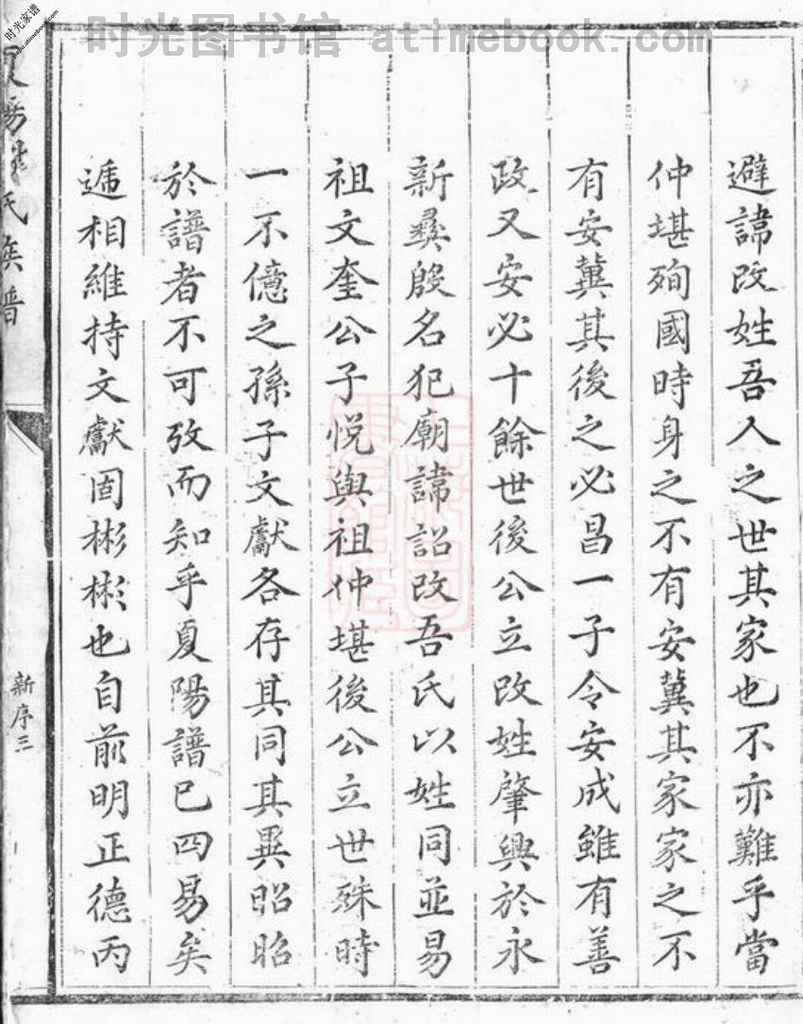 时光图书馆 atimebook.com
时光家谱
避諱改姓吾人之世其家也不亦難乎當
仲堪殉國時身之不有安冀其家家之不
有安冀其後之必昌一子令安成雖有善
政又安必十餘世後公立改姓肇興於永
新彝殷名犯廟諱詔改吾氏以姓同並易
祖文奎公子悅與祖仲堪後公立世殊時
一不億之孫子文獻各存其同其異昭昭
於譜者不可攷而知乎夏陽譜已四易矣
遞相維持文獻固彬彬也自前明正德丙
氏族譜
新序三